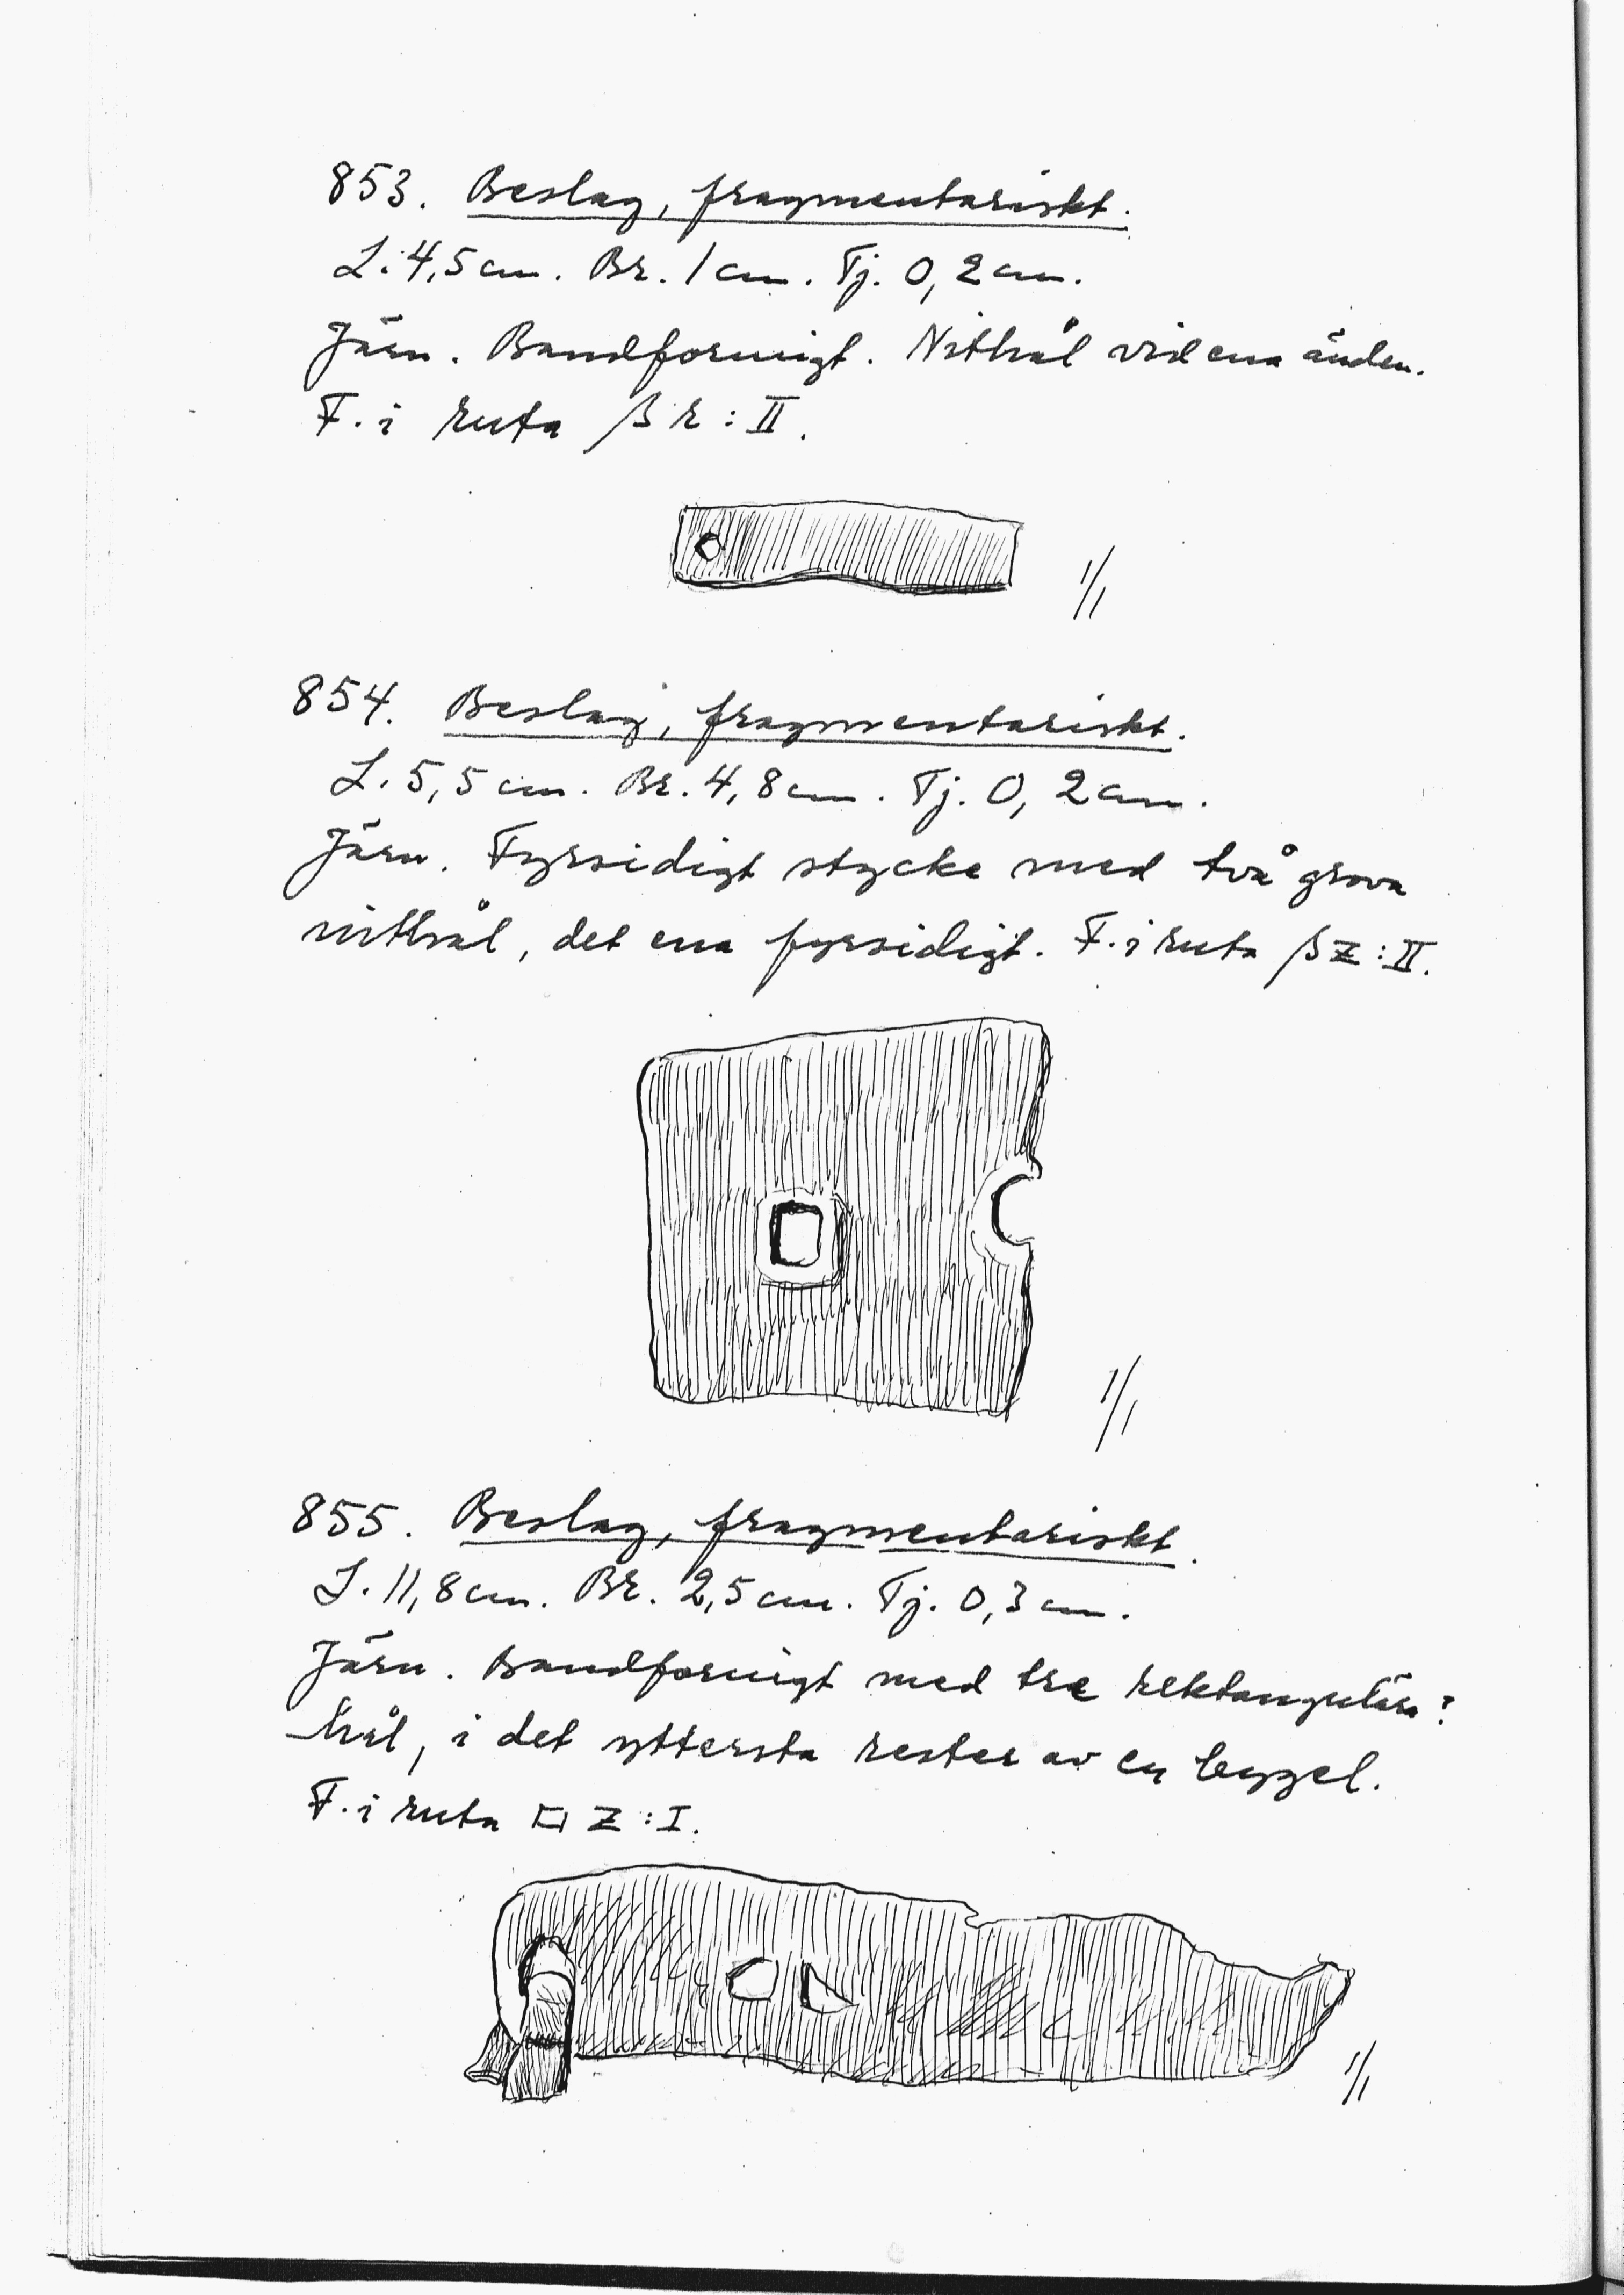 853. Beslag, fragmentariskt.
L. 4,5 cm. Br. 1 cm. Tj. 0,2 cm.
Järn. Bandformigt. Nithål vid ena änden.
F. i ruta β R : II.
1/1
854. Beslag, fragmentariskt.
L. 5,5 cm. Br. 4,8 cm. Tj. 0,2 cm.
Järn. Fyrsidigt stycke med två grova
nithål, det ena fyrsidigt. F. i ruta β Z : II.
1/1
855. Beslag, fragmentariskt.
L. 11,8 cm. Br. 2,5 cm. Tj. 0,3 cm.
Järn. Bandformigt med tre rektangulära?
hål, i det yttersta rester av en bygel.
F. i ruta □ Z : I.
1/1